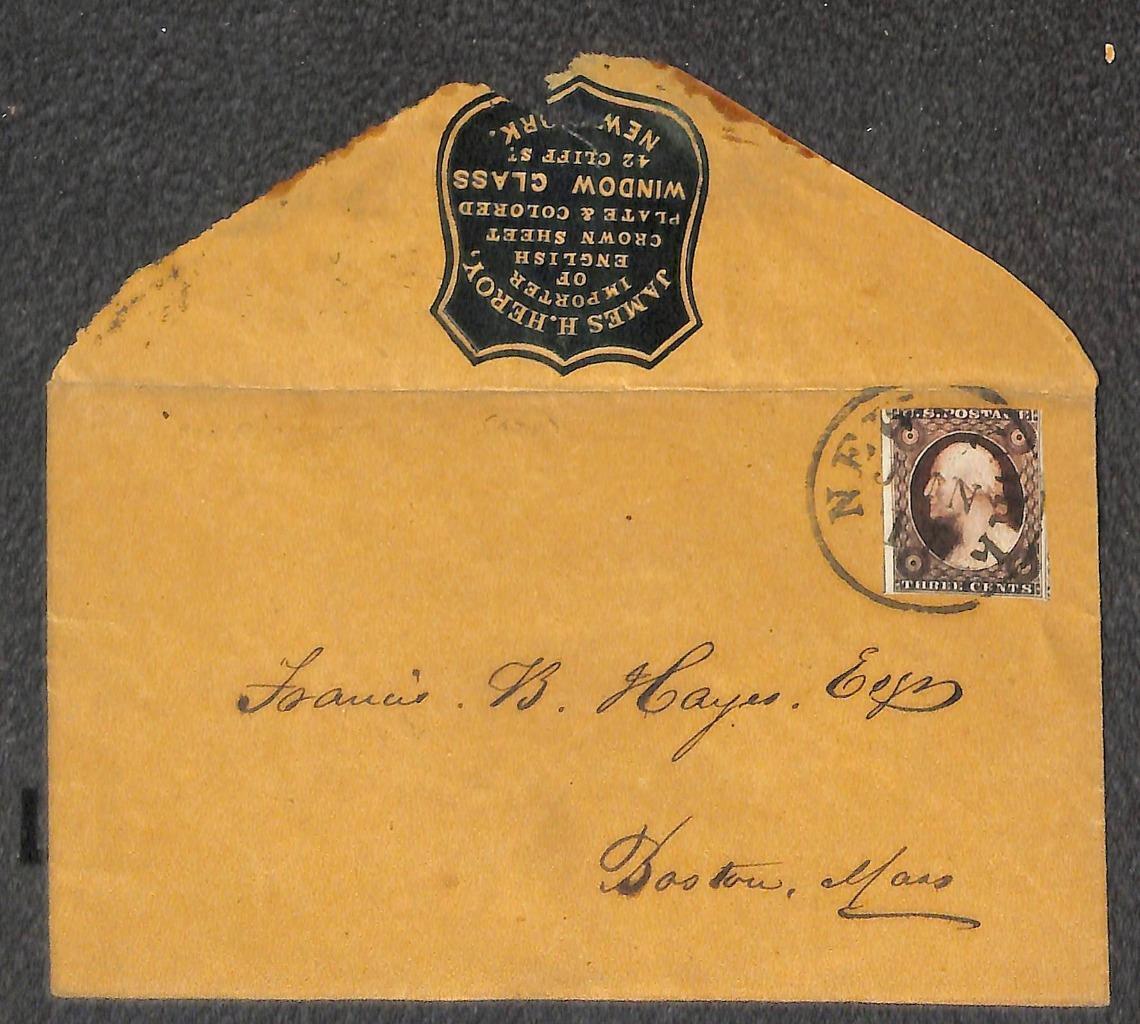 JAMES H. HEROY,
IMPORTER
OF
ENGLISH
CROWN SHEET
PLATE & COLORED
WINDOW GLASS
42 CLIFF ST.
NEW YORK.
U.S. POSTAGE
THREE CENTS
NEW
Francis. B. Hayes. Esqr
Boston, Mass